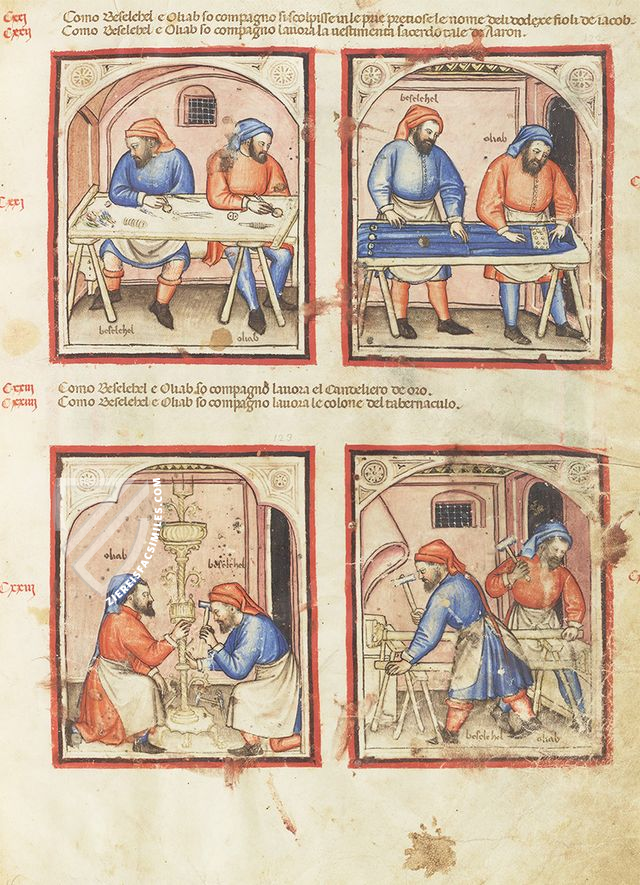 Cxxi Como Beselehel e Oliab so compagno si scolpisse in le prie pretiose le nome deli dodexe fioli de iacob.
Cxxii Como Beselehel e Oliab so compagno lauora la uestimenta sacerdotale de Aaron.
beselehel
oliab
Cxxi
beselehel
oliab
Cxxiii Como Beselehel e Oliab so compagno lauora el Candeliero de oro.
Cxxiiii Como Beselehel e Oliab so compagno lauora le colone del tabernaculo.
129
oliab
beselehel
Cxxiii
ZIEREISFACSIMILES.COM
beselehel
oliab